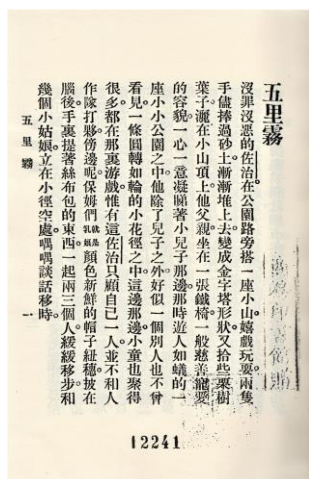 五里霧
沒罪沒惡的佐治在公園路旁搭一座小山嬉戲玩耍兩隻
手儘捧過砂土漸漸堆上去變成金字塔形狀又拾些栗樹
葉子灑在小山頂上他父親坐在一張鐵椅一般慈善寵愛
的容貌一心一意凝睇著小兒子那邊那時遊人如蟻的一
座小小公園之中他除了兒子之外好似一個別人也不曾
看見一條圓轉如輪的小花徑之中這邊那邊小童也聚得
很多都在那裏游戲惟有這佐治只顧自己一人並不和人
作隊打夥傍邊呢保姆們就是乳娘顏色新鮮的帽子紐穗披在
腦後手裏提著絲布包的東西一起兩三個人緩緩移步和
幾個小姑娘立在小徑空處喁喁談話移時
五里霧
一
12241